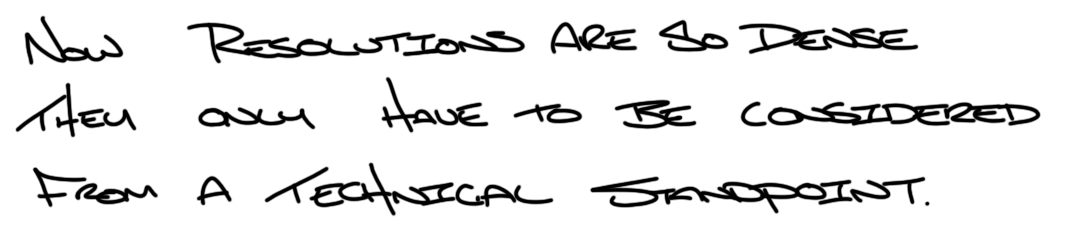 Now Resolutions Are So Dense
They only Have to Be considered
From A Technical Standpoint.